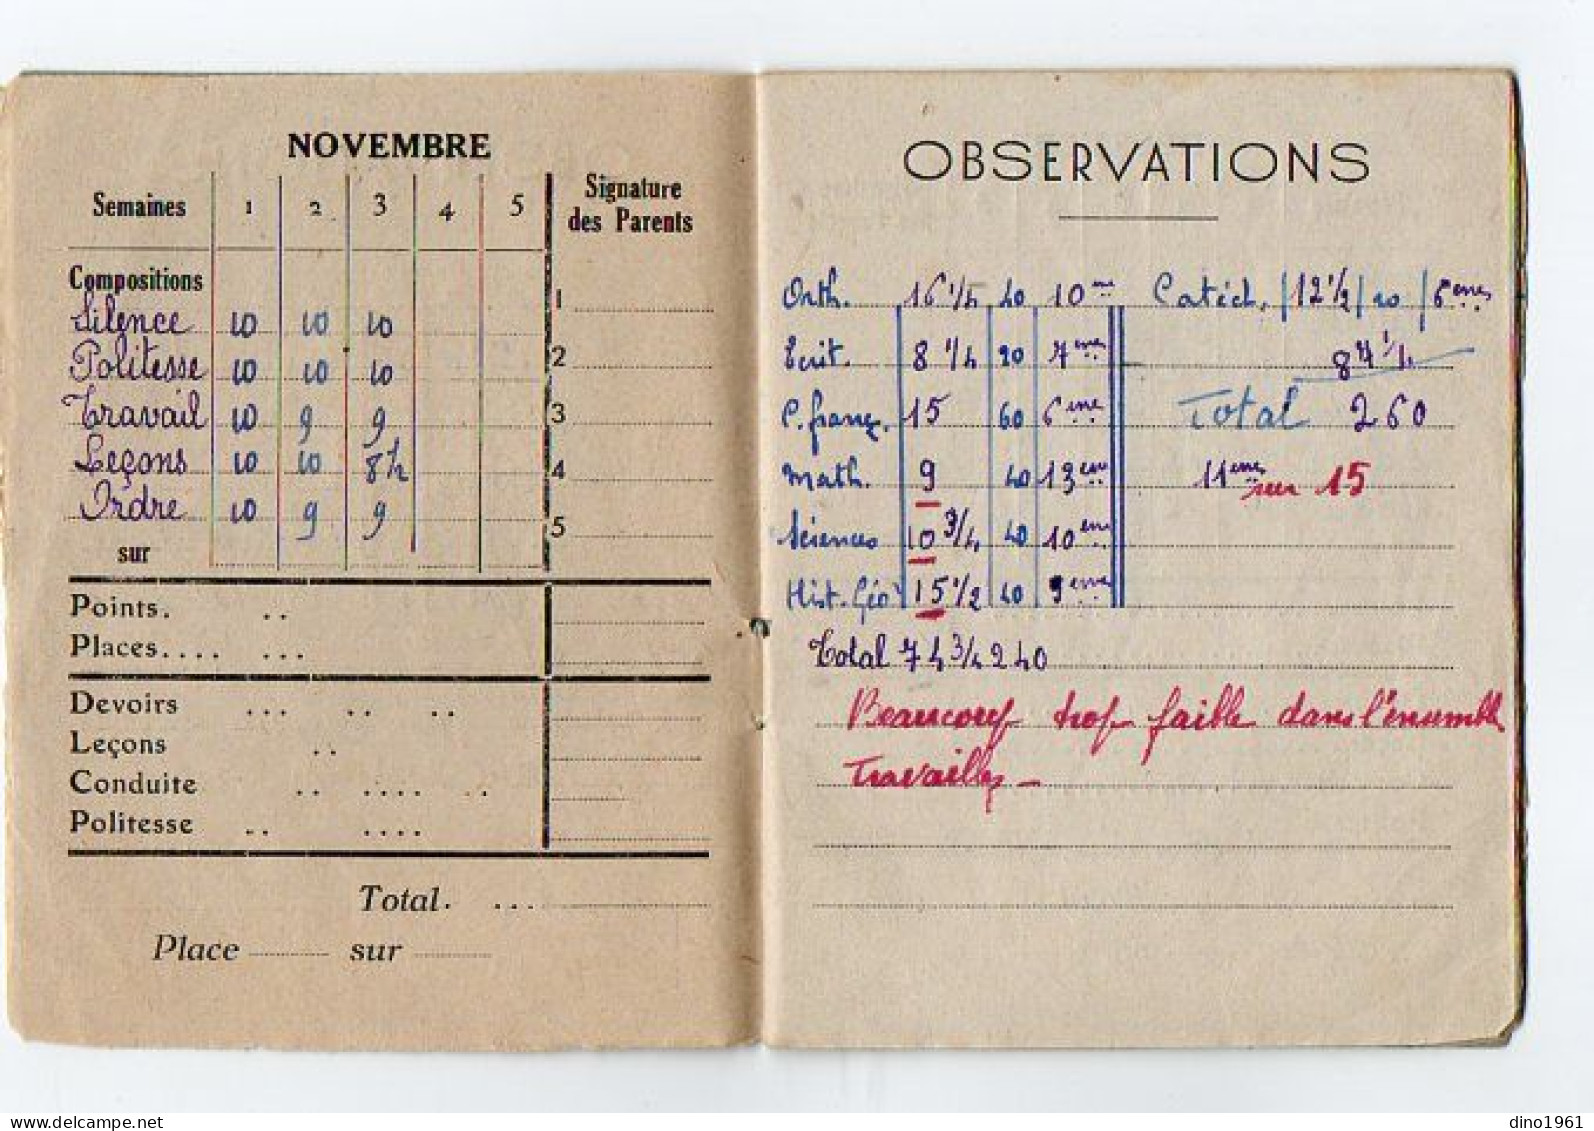 NOVEMBRE
Semaines 1 2 3 4 5 Signature des Parents
Compositions
Silence 10 10 10 1
Politesse 10 10 10 2
Travail 10 9 9 3
Leçons 10 10 8½ 4
Ordre 10 9 9 5
sur
Points. ..
Places.... ...
Devoirs ... .. ..
Leçons ..
Conduite .. .... ..
Politesse .. ....
Total. ...
Place sur
OBSERVATIONS
Orth. 16 1/4 40 10me Catéch. 12 1/2 20 6emes
Ecrit. 8 1/4 20 7eme 87 1/4
C. franç. 15 60 6eme Total 260
Math. 9 40 13eme 11emes sur 15
Sciences 10 3/4 40 10eme
Hist. Géo 15 1/2 40 9eme
Total 74 3/4 240
Beaucoup trop faible dans l'ensemble
Travaillez -
delcampe.net
dino1961